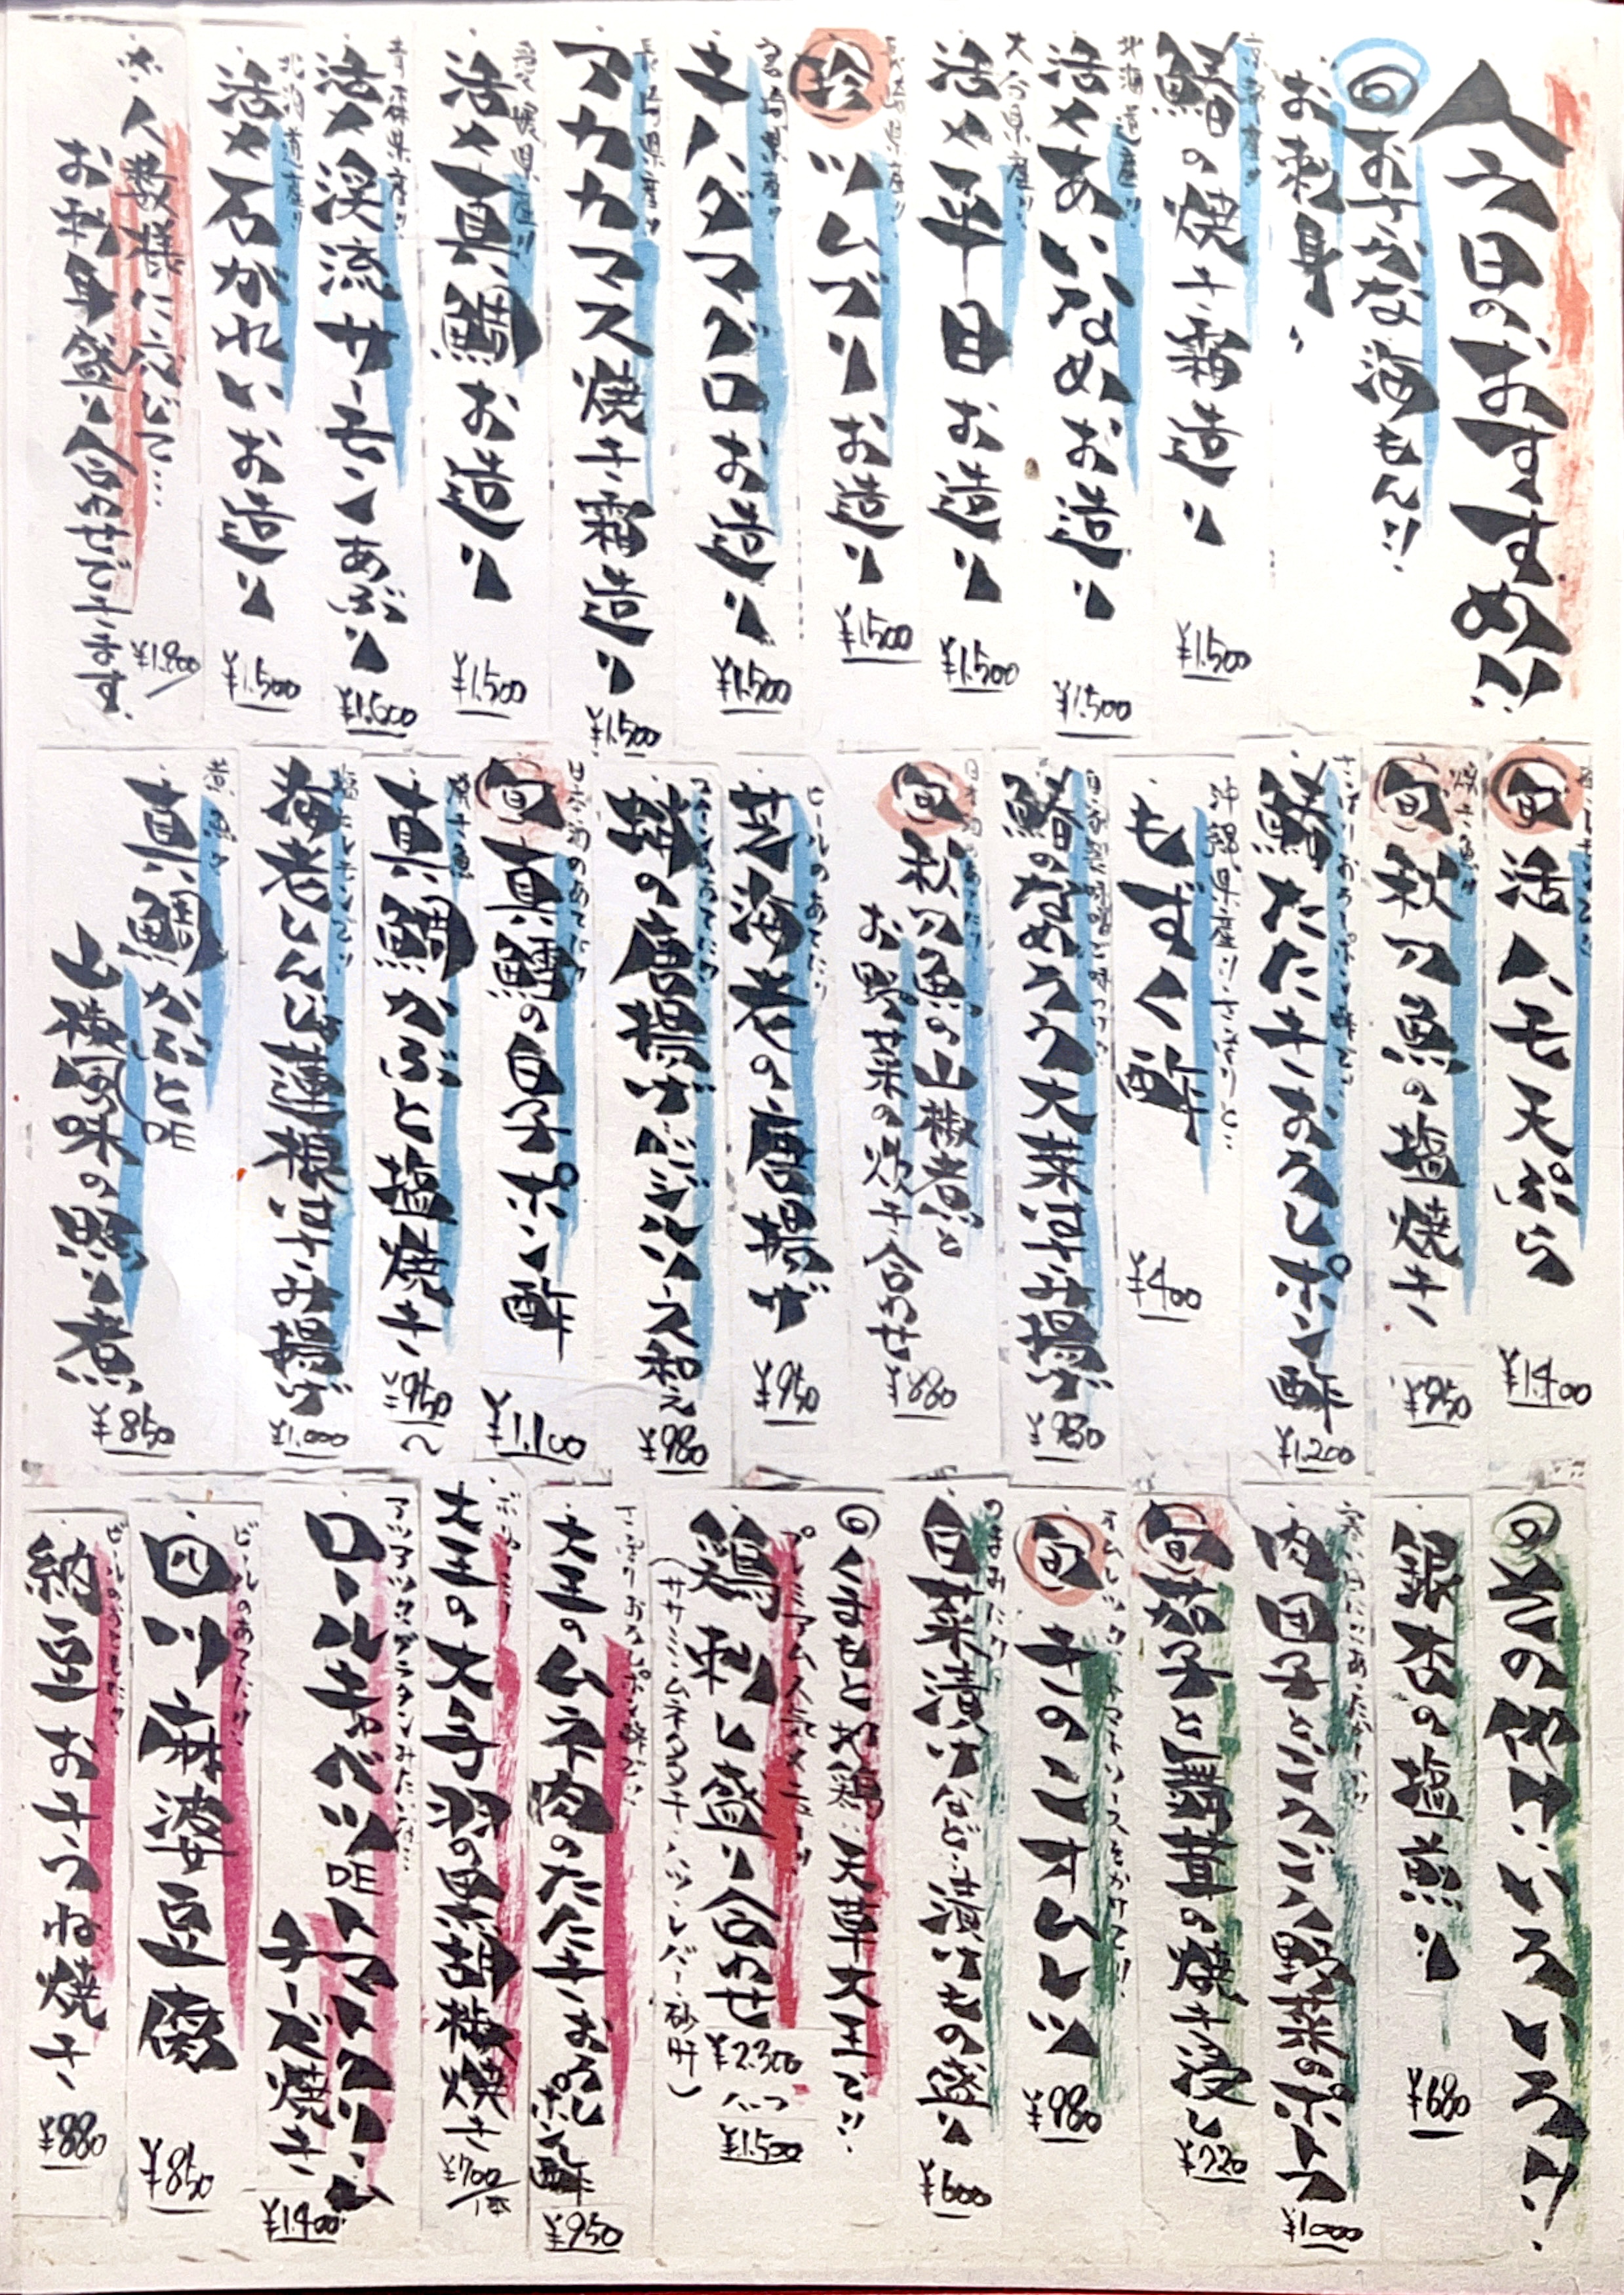 今日のおすすめ!!
◎おさかな海もん!!
お刺身、
京都産!!
鰆の焼き霜造り
¥1.500
北海道産!!
活〆あいなめお造り
¥1.500
大分県産!!
活〆平目お造り
¥1.500
長崎県産!!
珍 ツムブリお造り
¥1.500
宮崎県産!!
キハダマグロお造り
¥1.500
長崎県産!!
アカカマス焼き霜造り
¥1.500
愛媛県産!!
活〆真鯛お造り
¥1.500
青森県産!!
活〆渓流サーモンあぶり
¥1.600
北海道産!!
活〆石がれいお造り
¥1.500
※人数様に応じて…
お刺身盛り合わせできます.
¥1.800/
旬 活ハモ天ぷら
¥1.400
焼き魚!!
旬 秋刀魚の塩焼き
¥950
さっぱりおろしポン酢で!!
鰆たたきおろしポン酢
¥1.200
沖縄県産!!さっぱりと…
もずく酢
¥400
鰆のなめろう大葉はさみ揚げ
日本酒のあてに!!
旬 秋刀魚の山椒煮と
お野菜の炊き合わせ
¥880
ビールのあてに!!
芝海老の唐揚げ
¥950
ワインのあてに!!
¥980
日本酒のあてに!!
旬 真鱈の白子ポン酢
¥1.100
焼き魚
真鯛かぶと塩焼き
¥950〜
塩とレモンで!!
海老しんじょ蓮根はさみ揚げ
¥1.000
煮魚!!
真鯛かぶとDE
山椒風味の照り煮
¥850
◎その他いろいろ!!
銀杏の塩煎り
¥680
肉団子とごろごろ野菜のポトフ
¥1.000
旬 茄子と万願寺の焼き浸し
¥720
旬 きのこオムレツ
¥980
つまみに!!
白菜漬け
の盛り
¥600
◎くまもと地鶏 天草大王で!!
鶏刺し盛り合わせ
¥2.300
ハーフ
¥1.500
(ササミ・ムネのタタキ・ハツ・レバー・砂肝)
さっぱりおろしポン酢で!!
大王のムネ肉のたたきおろしポン酢
¥950
大王の大手羽の黒胡椒焼き
¥700/1本
アツアツグラタンみたいな!!…
ロールキャベツDEトマトクリーム
チーズ焼き
¥1.400
ビールのあてに!!
四川麻婆豆腐
¥850
ビールのあてに!!
納豆おきつね焼き
¥880